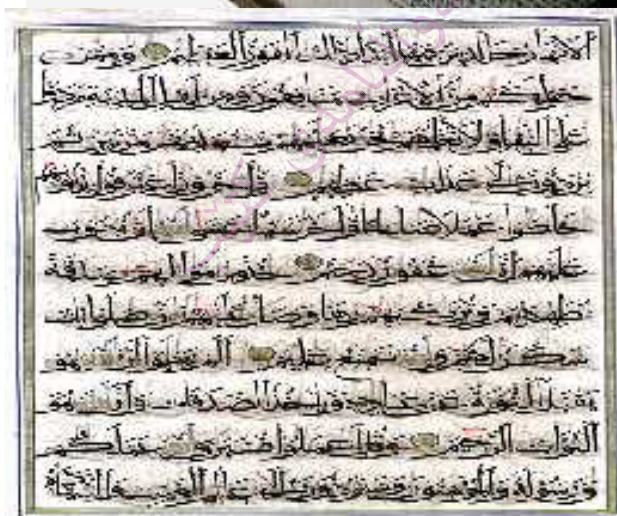 الانهار خالدين فيها ابدا ذلك الفوز العظيم وممن
حولكم من الاعراب منافقون ومن اهل المدينة مردوا
على النفاق لا تعلمهم نحن نعلمهم سنعذبهم مرتين ثم
يردون الى عذاب عظيم واخرون اعترفوا بذنوبهم
خلطوا عملا صالحا واخر سيئا عسى الله ان يتوب
عليهم ان الله غفور رحيم خذ من اموالهم صدقة
تطهرهم وتزكيهم بها وصل عليهم ان صلوتك
سكن لهم والله سميع عليم الم يعلموا ان الله هو
يقبل التوبة عن عباده وياخذ الصدقات وان الله هو
التواب الرحيم وقل اعملوا فسيرى الله عملكم
ورسوله والمؤمنون وستردون الى عالم الغيب والشهادة